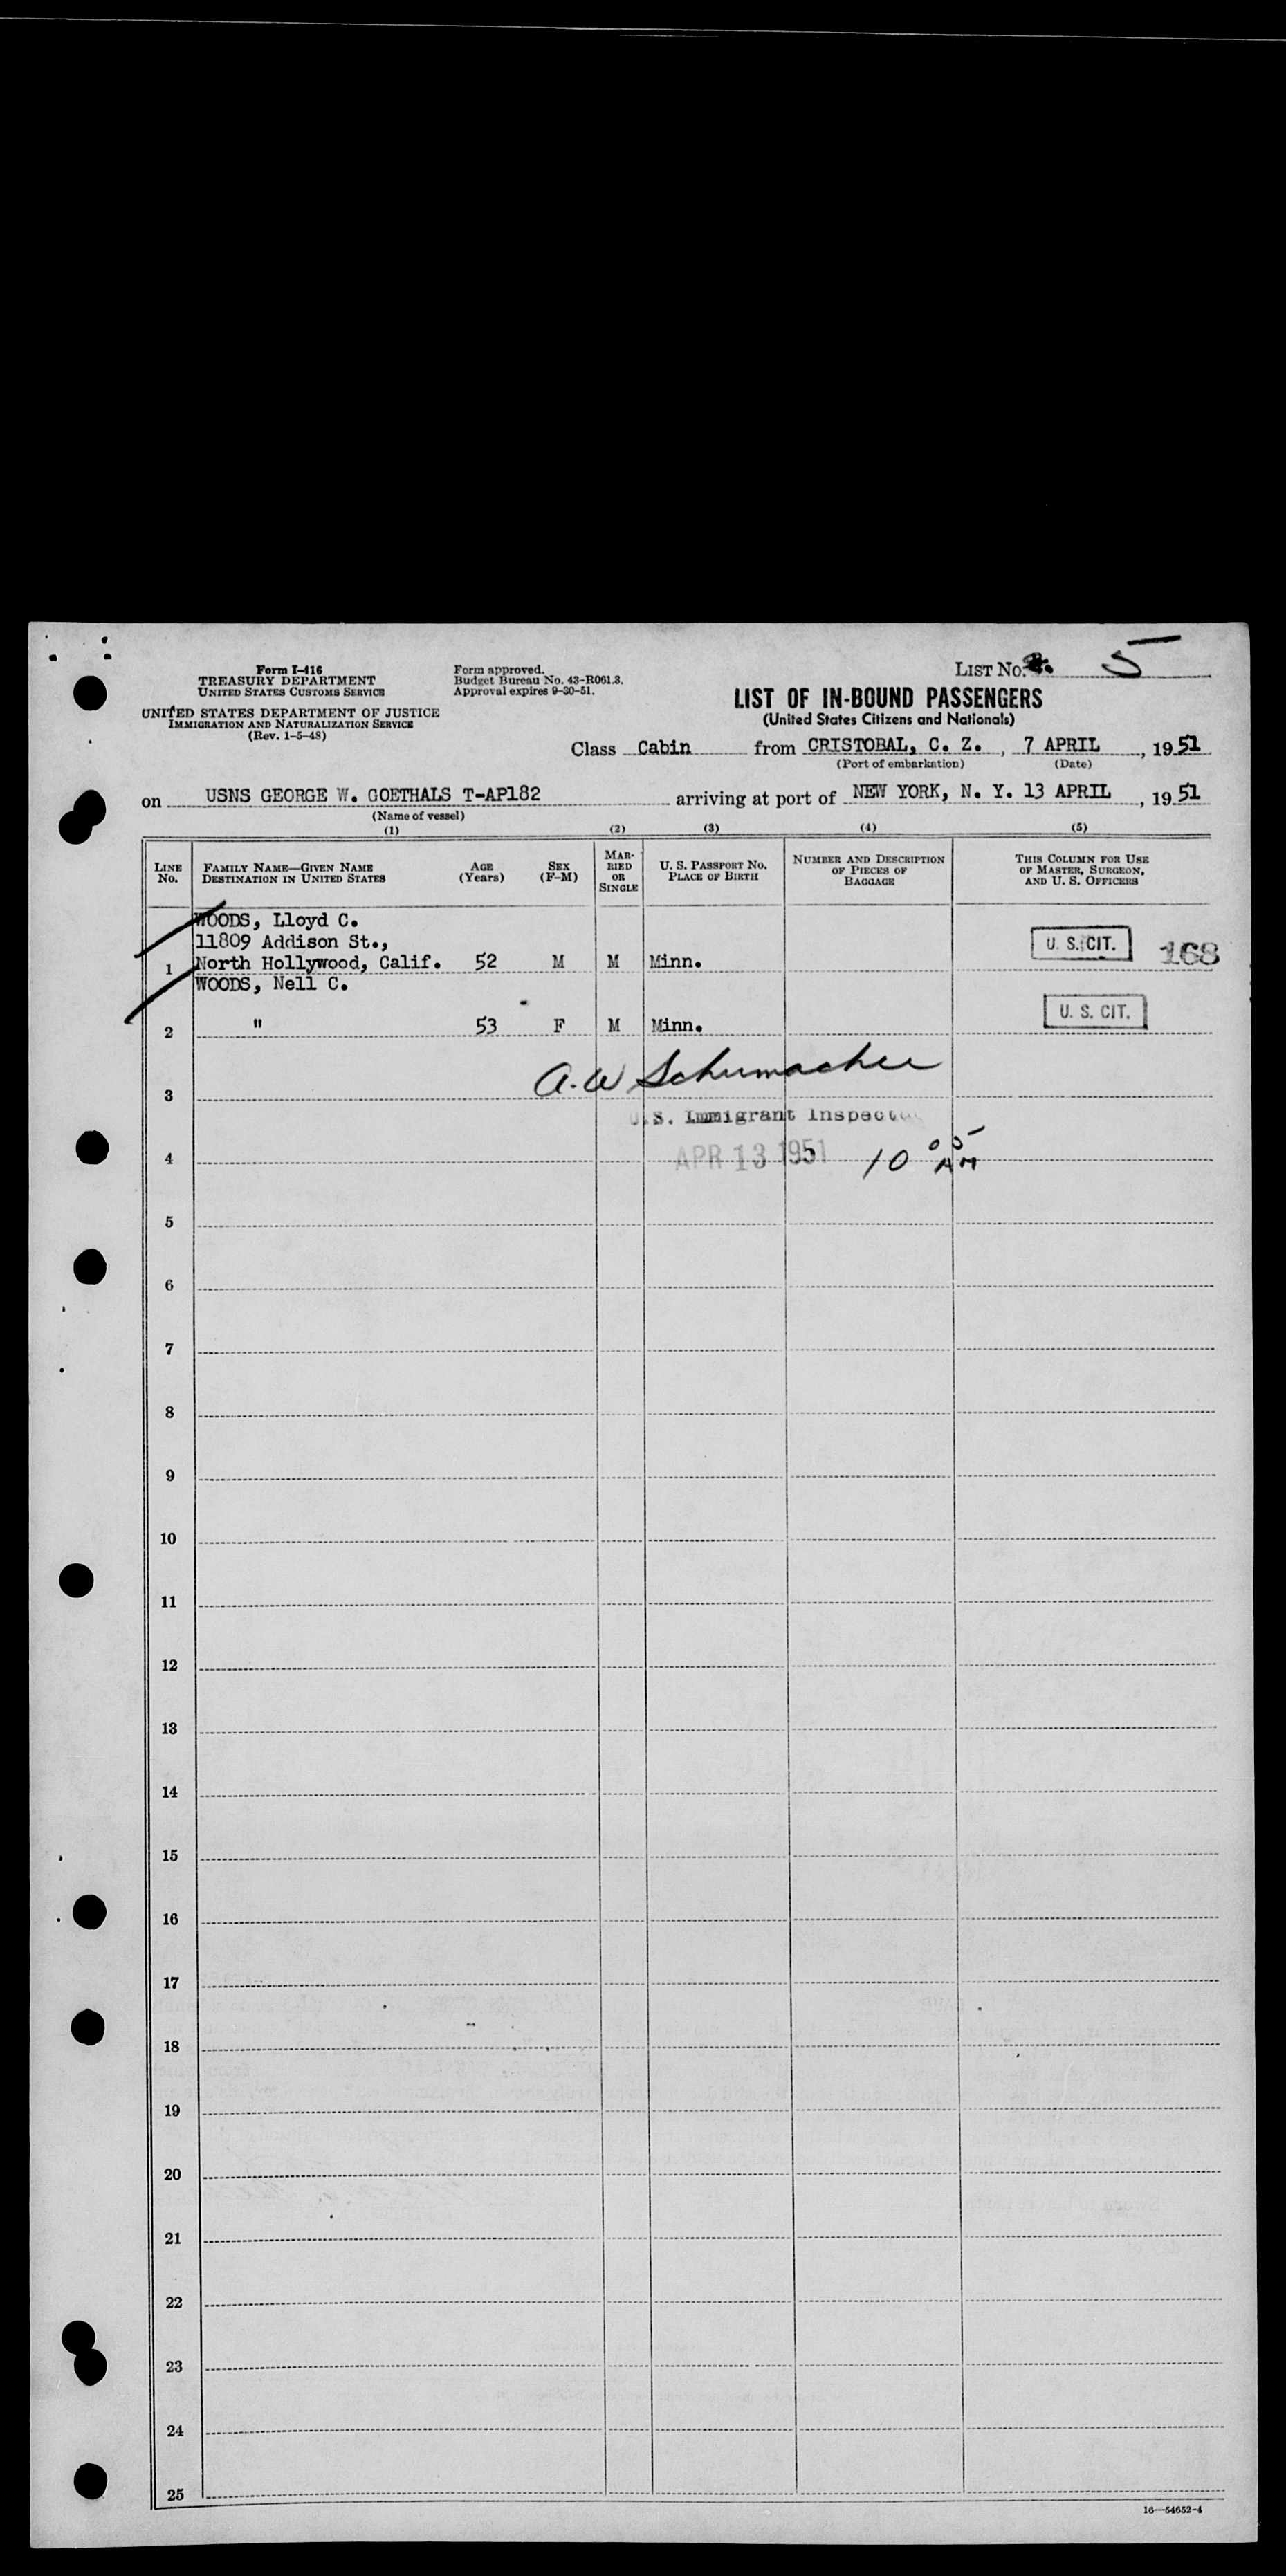 Form I-416
TREASURY DEPARTMENT
UNITED STATES CUSTOMS SERVICE
UNITED STATES DEPARTMENT OF JUSTICE
IMMIGRATION AND NATURALIZATION SERVICE
(Rev. 1-5-48)
Form approved.
Budget Bureau No. 43-R061.3.
Approval expires 9-30-51.
LIST No. 5
LIST OF IN-BOUND PASSENGERS
(United States Citizens and Nationals)
Class Cabin from CRISTOBAL, C. Z. , 7 APRIL , 1951
(Port of embarkation) (Date)
on USNS GEORGE W. GOETHALS T-AP182 arriving at port of NEW YORK, N. Y. 13 APRIL , 1951
(Name of vessel)
(1) (2) (3) (4) (5)
LINE No.
FAMILY NAME—GIVEN NAME
DESTINATION IN UNITED STATES
AGE (Years)
SEX (F-M)
MARRIED OR SINGLE
U. S. PASSPORT No.
PLACE OF BIRTH
NUMBER AND DESCRIPTION OF PIECES OF BAGGAGE
THIS COLUMN FOR USE OF MASTER, SURGEON, AND U. S. OFFICERS
WOODS, Lloyd C.
11809 Addison St.,
1 North Hollywood, Calif. 52 M M Minn. U. S. CIT. 168
WOODS, Nell C.
2 " 53 F M Minn. U. S. CIT.
A. W Schumacher
3
U.S. Immigrant Inspector
4 APR 13 1951 10 05 AM
5
6
7
8
9
10
11
12
13
14
15
16
17
18
19
20
21
22
23
24
25
16—54652-4